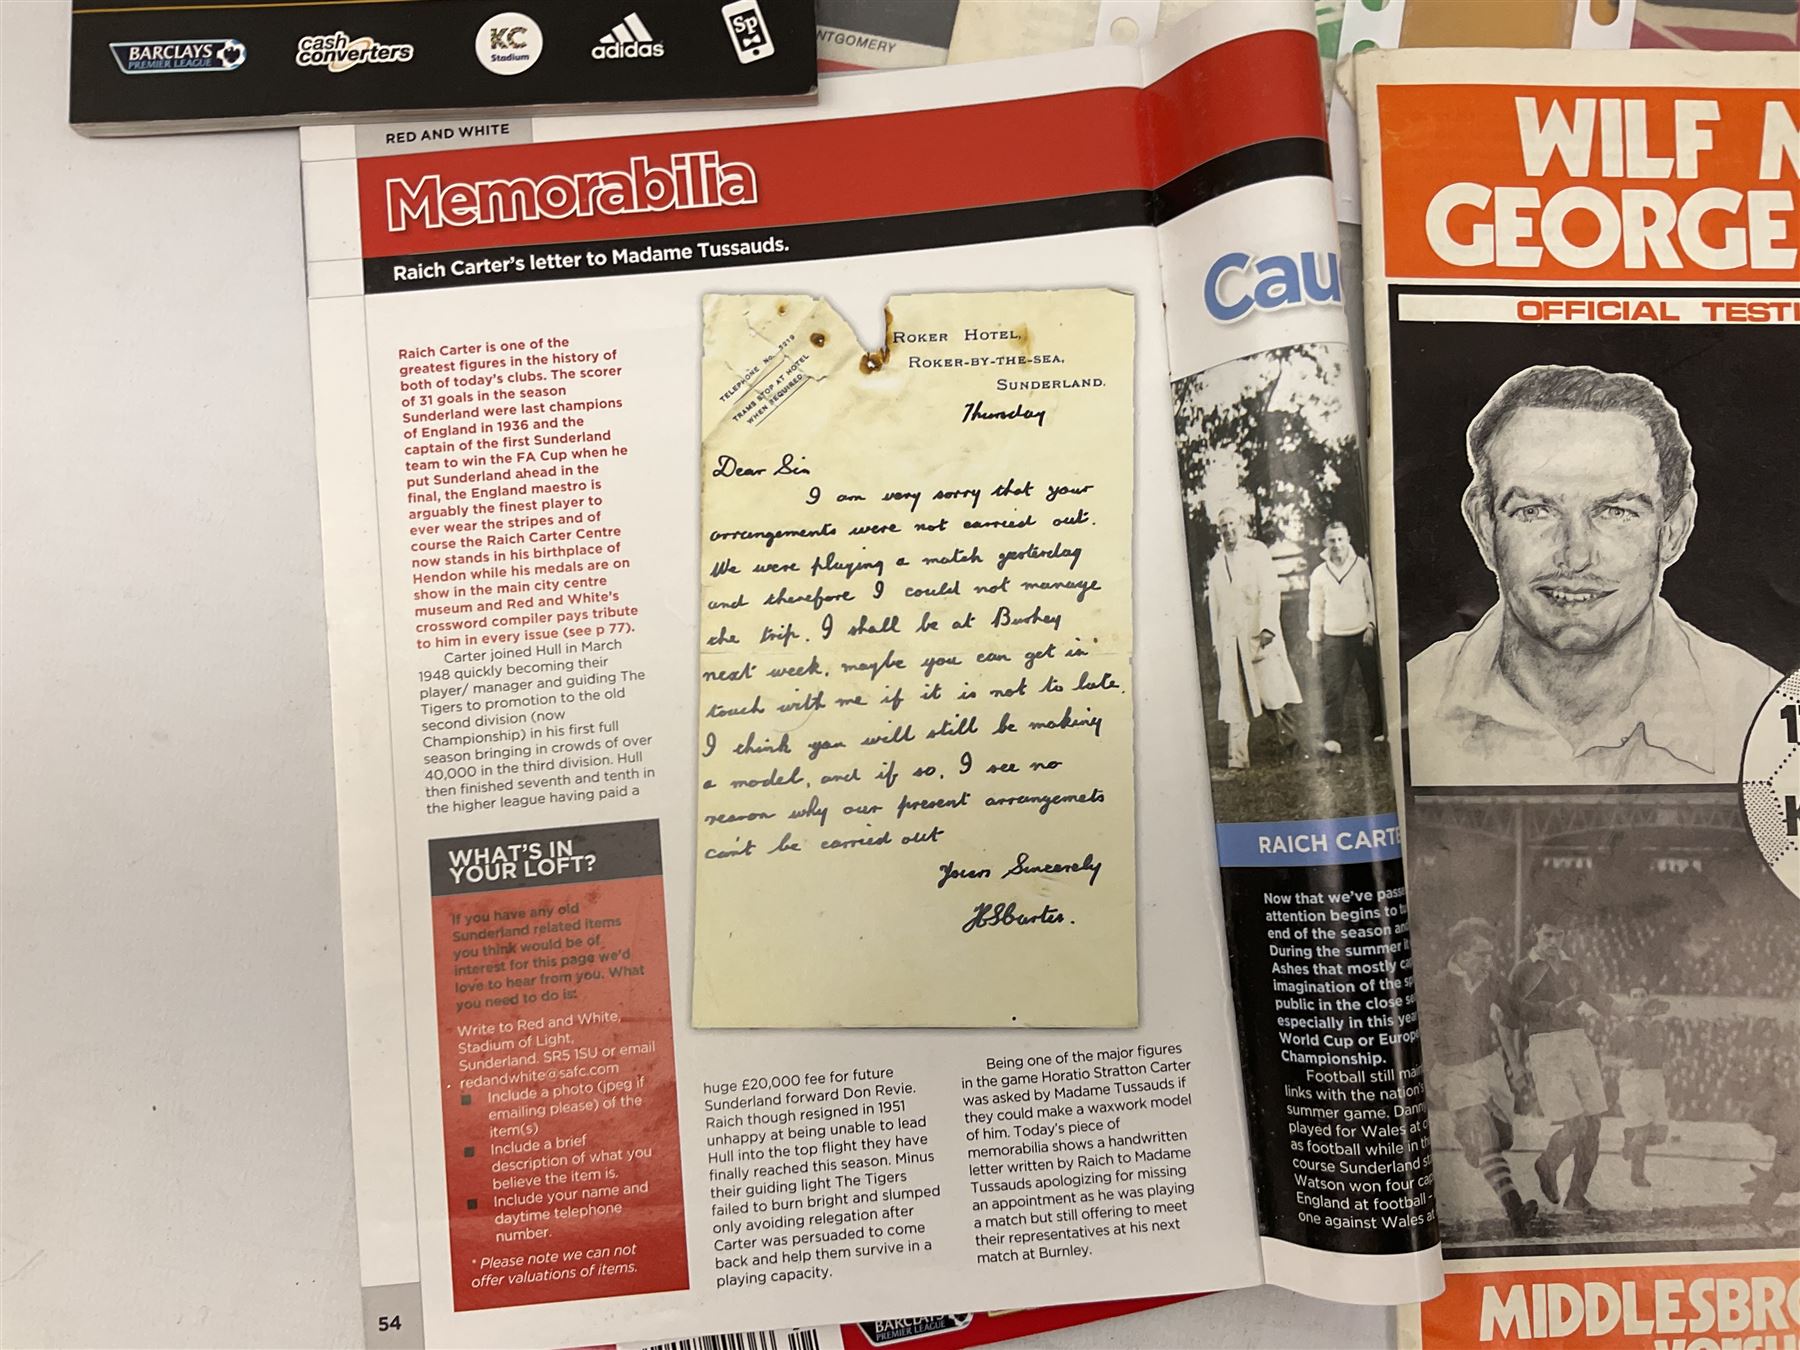 BARCLAYS
PREMIER LEAGUE
cash
converters
KC
Stadium
adidas
Sp
NTGOMERY
RED AND WHITE
Memorabilia
Raich Carter's letter to Madame Tussauds.
Raich Carter is one of the
greatest figures in the history of
both of today's clubs. The scorer
of 31 goals in the season
Sunderland were last champions
of England in 1936 and the
captain of the first Sunderland
team to win the FA Cup when he
put Sunderland ahead in the
final, the England maestro is
arguably the finest player to
ever wear the stripes and of
course the Raich Carter Centre
now stands in his birthplace of
Hendon while his medals are on
show in the main city centre
museum and Red and White's
crossword compiler pays tribute
to him in every issue (see p 77).
Carter joined Hull in March
1948 quickly becoming their
player/ manager and guiding The
Tigers to promotion to the old
second division (now
Championship) in his first full
season bringing in crowds of over
40,000 in the third division. Hull
then finished seventh and tenth in
the higher league having paid a
WHAT'S IN
YOUR LOFT?
If you have any old
Sunderland related items
you think would be of
interest for this page we'd
love to hear from you. What
you need to do is:
Write to Red and White,
Stadium of Light,
Sunderland. SR5 1SU or email
redandwhite@safc.com
Include a photo (jpeg if
emailing please) of the
item(s)
Include a brief
description of what you
believe the item is.
Include your name and
daytime telephone
number.
* Please note we can not
offer valuations of items.
54
TELEPHONE No. 5219
TRAMS STOP AT HOTEL
WHEN REQUIRED
ROKER HOTEL,
ROKER-BY-THE-SEA,
SUNDERLAND.
Thursday
Dear Sir
I am very sorry that your
arrangements were not carried out.
We were playing a match yesterday
and therefore I could not manage
the trip. I shall be at Burnley
next week, maybe you can get in
touch with me if it is not to late.
I think you will still be making
a model, and if so, I see no
reason why our present arrangemets
can't be carried out
Yours Sincerely
HSCarter.
huge £20,000 fee for future
Sunderland forward Don Revie.
Raich though resigned in 1951
unhappy at being unable to lead
Hull into the top flight they have
finally reached this season. Minus
their guiding light The Tigers
failed to burn bright and slumped
only avoiding relegation after
Carter was persuaded to come
back and help them survive in a
playing capacity.
Being one of the major figures
in the game Horatio Stratton Carter
was asked by Madame Tussauds if
they could make a waxwork model
of him. Today's piece of
memorabilia shows a handwritten
letter written by Raich to Madame
Tussauds apologizing for missing
an appointment as he was playing
a match but still offering to meet
their representatives at his next
match at Burnley.
Cau
RAICH CARTE
Now that we've passe
attention begins to tu
end of the season and
During the summer it
Ashes that mostly ca
imagination of the sp
public in the close se
especially in this year
World Cup or Europe
Championship.
Football still main
links with the nation's
summer game. Danny
played for Wales at c
as football while in th
course Sunderland st
Watson won four cap
England at football -
one against Wales at
WILF M
GEORGE
OFFICIAL TESTI
1
K
MIDDLESBRO
BARCLAYS
PREMIER LEAGUE